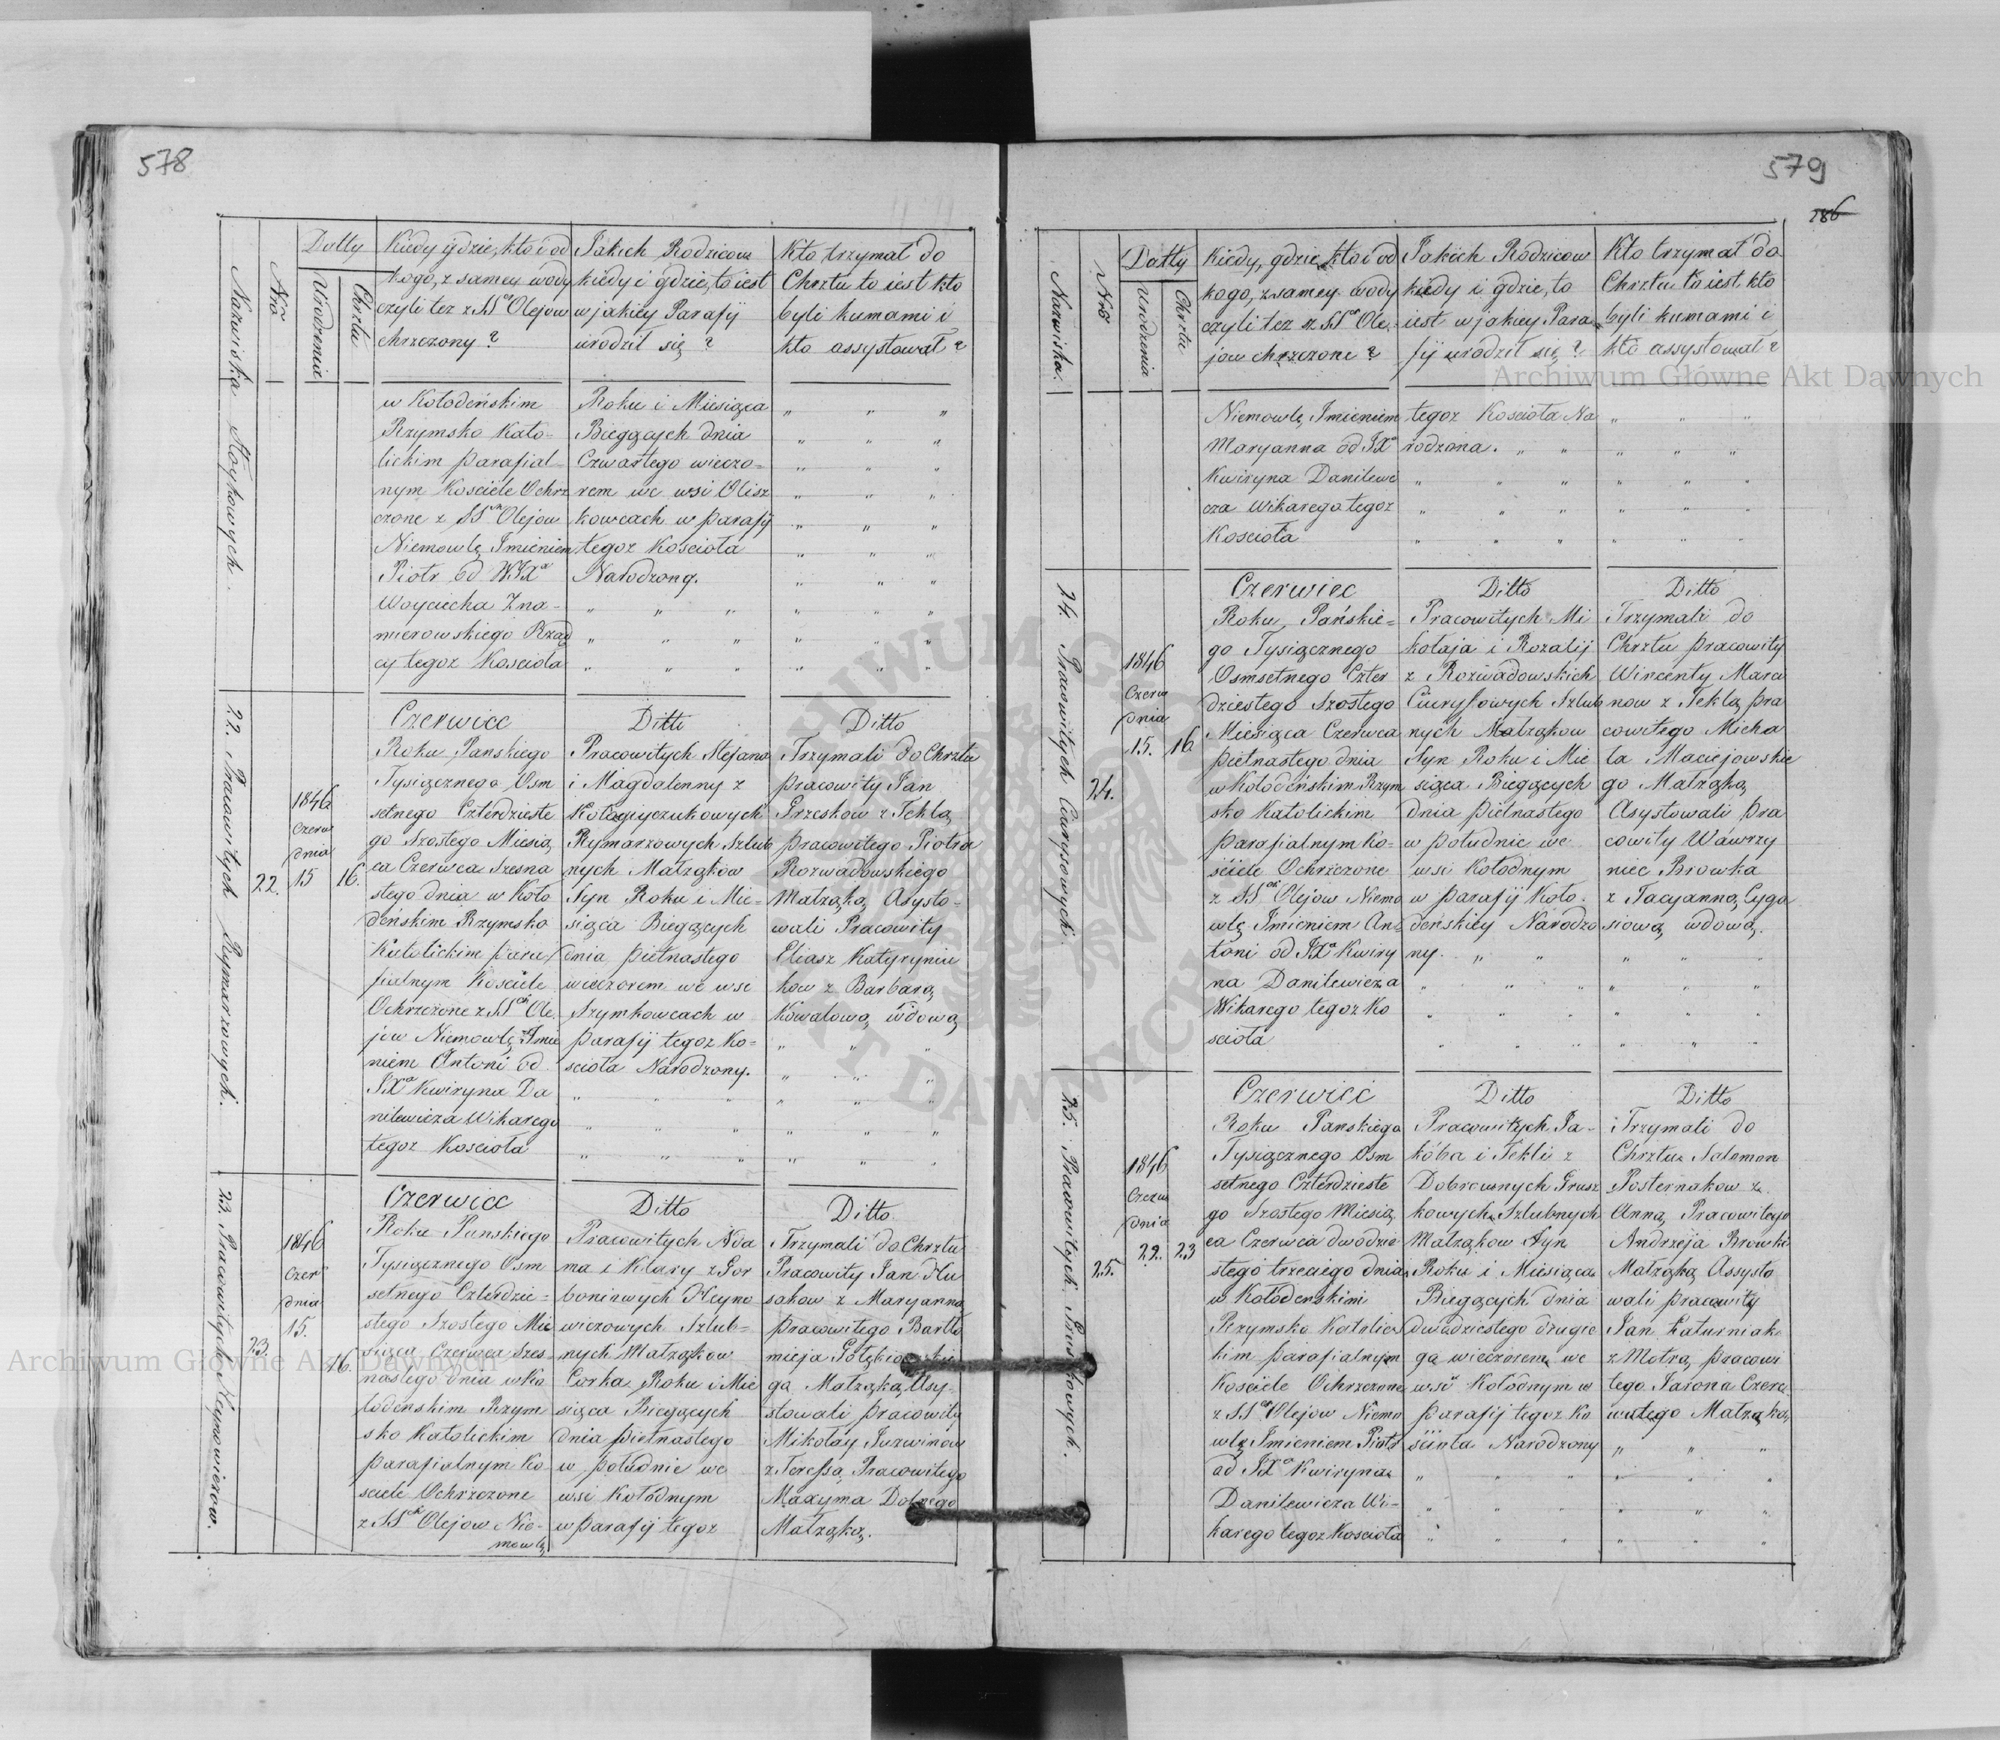 578
Nazwiska
Nro
Datty
Urodzenia
Chrztu
Kiedy, gdzie, kto i od
kogo, z samey wody
czyli tez z SS. Olejow
chrzczony?
Jakich Rodzicow
kiedy i gdzie, to iest
w jakiey Parafij
urodził się?
Kto trzymał do
Chrztu to iest kto
byli kumami i
kto assystował?
w Kołodeńskim
Rzymsko Kato-
lickim parafial-
nym Kosciele Ochrz
czone z SS. Olejow
Niemowlę Imieniem
Piotr od WJX
Woyciecha Zna-
mierowskiego Rząd
cy tegoz Kosciola
Roku i Miesiąca
Biegących dnia
Czwartego wieczo-
rem we wsi Olisz
kowcach w parafij
tegoz Kosciola
Narodzony.
22. Pracowitych Rymarzowych.
22.
1846
Czerw
dnia
15
16.
Czerwiec
Roku Panskiego
Tysiącznego Osm
setnego Czterdzieste
go Szostego Miesią
ca Czerwca Szesna
stego dnia w Koło
deńskim Rzymsko
Katolickim para
fialnym Kosciele
Ochrzczone z SS. Ole
jow Niemowlę Imie
niem Antoni od
JX Kwiryna Da
nilewicza Wikarego
tegoz Kosciola
Ditto
Pracowitych Stefana
i Magdalenny z
Rymarzowych Szlub
nych Małząkow
Syn Roku i Mie-
siąca Biegących
dnia pietnastego
wieczorem we wsi
Szymkowcach w
parafij tegoz Ko-
sciola Narodzony.
Ditto
Trzymali do Chrztu
pracowity Jan
Przeskow z Teklą
pracowitego Piotra
Rozwadowskiego
Małząką Asysto-
wali Pracowity
Eliasz Katyryniu
kow z Barbarą
Kowalową wdową
23. Pracowitych Heynowiczow.
23.
1846
Czer
dnia
15.
16.
Czerwiec
Roku Panskiego
Tysiącznego Osm
setnego Czterdzie-
stego Szostego Mie
siąca Czerwca Szes
nastego dnia w Ko
łodenskim Rzym
sko Katolickim
parafialnym Ko
sciele Ochrzczone
z SS. Olejow Nie-
mowlę
Ditto
Pracowitych Ada
ma i Klary z Gor
boniowych Heyno
wiczowych Szlub-
nych Małząkow
Corka Roku i Mie
siąca Biegących
dnia pietnastego
w południe we
wsi Kołodnym
w parafij tegoz
Ditto
Trzymali do Chrztu
Pracowity Jan Hu
sakow z Maryanną
pracowitego Bartło
mieja
go Małząką Asy-
stowali pracowity
Mikołay Juzwinow
z Teressą Pracowitego
Maxyma Dobrego
Małząką.
579
286
Nazwiska.
Nro
Datty
Urodzenia
Chrztu
Kiedy, gdzie, kto i od
kogo, z samey wody
czyli tez z SS. Ole-
jow chrzczone?
Jakich Rodzicow
kiedy i gdzie, to
iest w jakiey Para-
fij urodził się?
Kto trzymał do
Chrztu to iest kto
byli kumami i
kto assystował?
Archiwum Główne Akt Dawnych
Niemowlę Imieniem
Maryanna od JX
Kwiryna Danilewi
cza Wikarego tegoz
Kosciola
tegoz Kosciola Na
rodzona.
24. Pracowitych Ciurysowych.
24.
1846
Czerw
dnia
15.
16
Czerwiec
Roku Pańskie-
go Tysiącznego
Osmsetnego Czter
dziestego Szostego
Miesiąca Czerwca
pietnastego dnia
w Kołodeńskim Rzym
sko Katolickim
parafialnym Ko-
sciele Ochrzczone
z SS. Olejow Niemo
wlę Imieniem An-
toni od JX Kwiry
na Danilewicza
Wikarego tegoz Ko
sciola
Ditto
Pracowitych Mi
kołaja i Rozalij
z Rozwadowskich
Ciurysowych Szlub
nych Małząkow
Syn Roku i Mie
siąca Biegących
dnia pietnastego
w południe we
wsi Kołodnym
w parafij Koło-
deńskiey Narodzo
ny.
Ditto
Trzymali do
Chrztu pracowity
Wincenty Marci
now z Teklą pra
cowitego Micha
ła Maciejowskie
go Małząką
Asystowali pra
cowity Wawrzy
niec Browka
z Tacyanną Cyga
siową wdową.
25. Pracowitych Gruszkowych.
25.
1846
Czerw
dnia
22.
23
Czerwiec
Roku Panskiego
Tysiącznego Osm
setnego Czterdzieste
go Szostego Miesią
ca Czerwca dwodzie
stego trzeciego dnia
w Kołodenskim
Rzymsko Katolic
kim parafialnym
Kosciele Ochrzczone
z SS. Olejow Niemo
wlę Imieniem Piotr
od JX Kwiryna
Danilewicza Wi-
karego tegoz Kosciola
Ditto
Pracowitych Ja-
kóba i Tekli z
Dobrowsnych Grusz
kowych Szlubnych
Małząkow Syn
Roku i Miesiąca
Biegących dnia
dwudziestego drugie
go wieczorem we
wsi Kołodnym w
parafij tegoz Ko
sciola Narodzony
Ditto
Trzymali do
Chrztu Salomon
Posternakow z
Anną Pracowitego
Andrzeja Browki
Małząką Assysto
wali pracowity
Jan Łaturniak
z Motrą pracowi
tego Jarona Czere
watego Małząką
Archiwum Główne Akt Dawnych